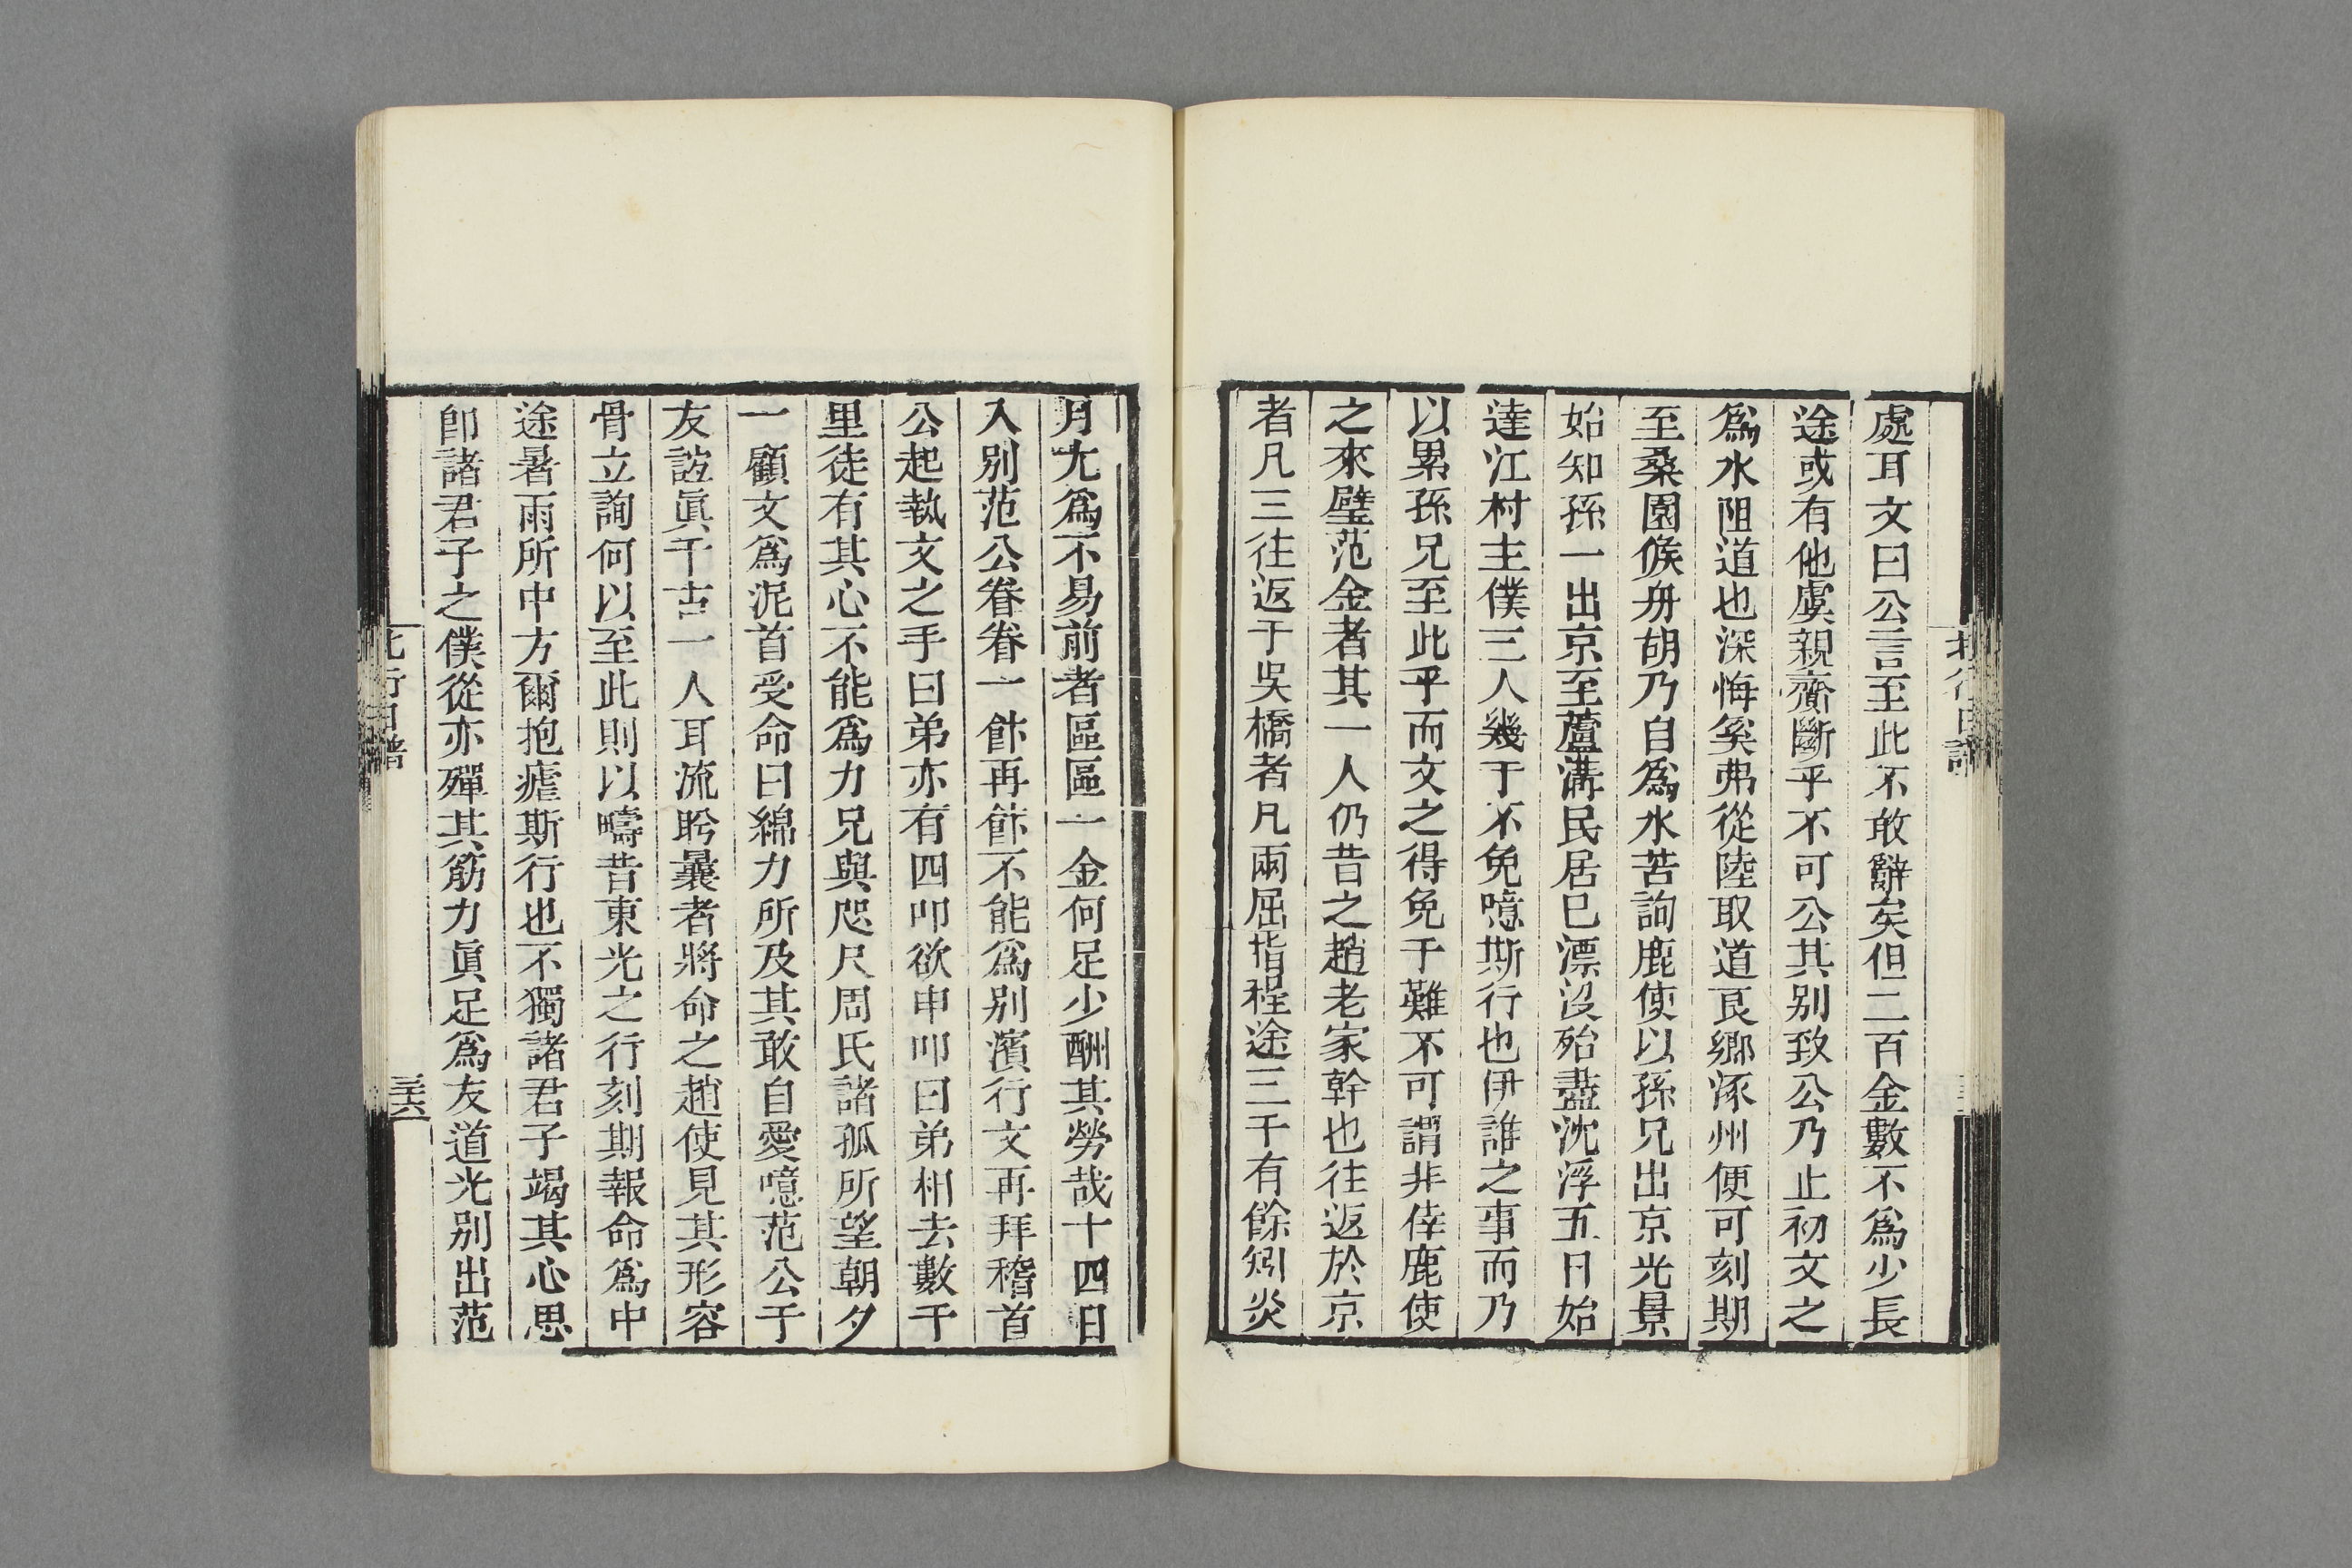 處耳文曰公言至此不敢辭矣但二百金數不爲少長
途或有他虞親齎斷乎不可公其别致公乃止初文之
爲水阻道也深悔奚弗從陸取道良鄉涿州便可刻期
至桑園候舟胡乃自爲水苦詢鹿使以孫兄出京光景
始知孫一出京至蘆溝民居已漂沒殆盡沈浮五日始
達江村主僕三人幾于不免噫斯行也伊誰之事而乃
以累孫兄至此乎而文之得免于難不可謂非倖鹿使
之來璧范金者其一人仍昔之趙老家幹也往返於京
者凡三往返于吳橋者凡兩屈指程途三千有餘矧炎
月尤爲不易前者區區一金何足少酬其勞哉十四日
入别范公眷眷一餙再餙不能爲别濱行文再拜稽首
公起執文之手曰弟亦有四叩欲申叩曰弟相去數千
里徒有其心不能爲力兄與咫尺周氏諸孤所望朝夕
一顧文爲泥首受命曰綿力所及其敢自愛噫范公于
友誼眞千古一人耳流盻曩者將命之趙使見其形容
骨立詢何以至此則以疇昔東光之行刻期報命爲中
途暑雨所中方爾抱瘧斯行也不獨諸君子竭其心思
卽諸君子之僕從亦殫其筋力眞足爲友道光别出范
北行日譜
三六